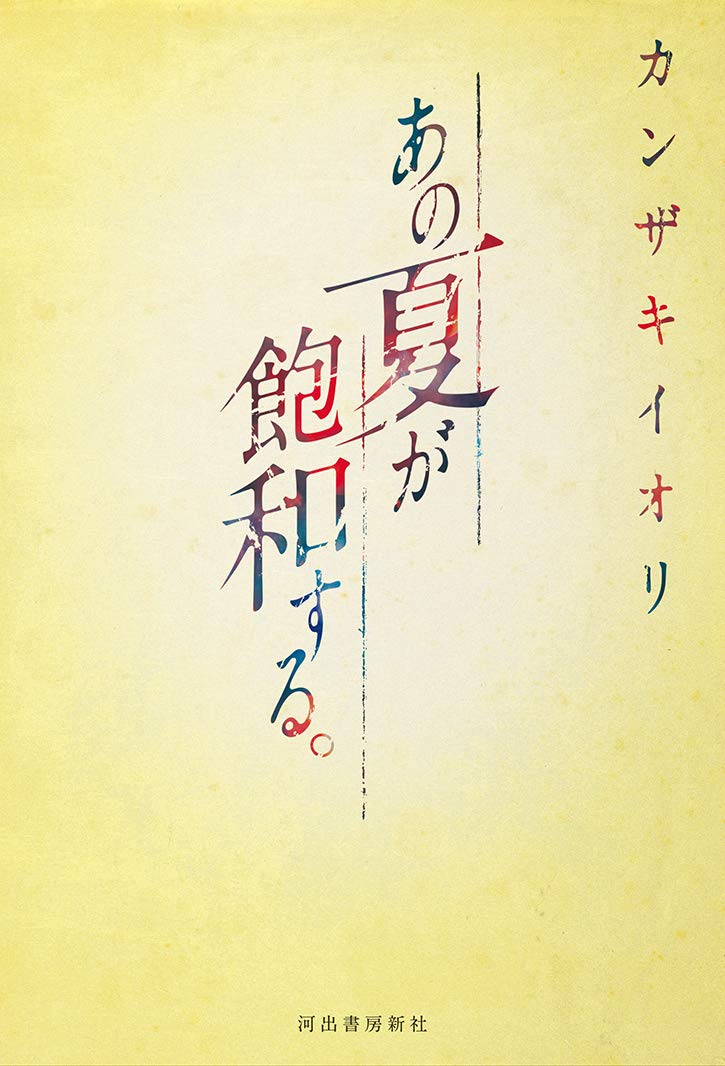 カンザキイオリ
あの夏が
飽和する。
河出書房新社